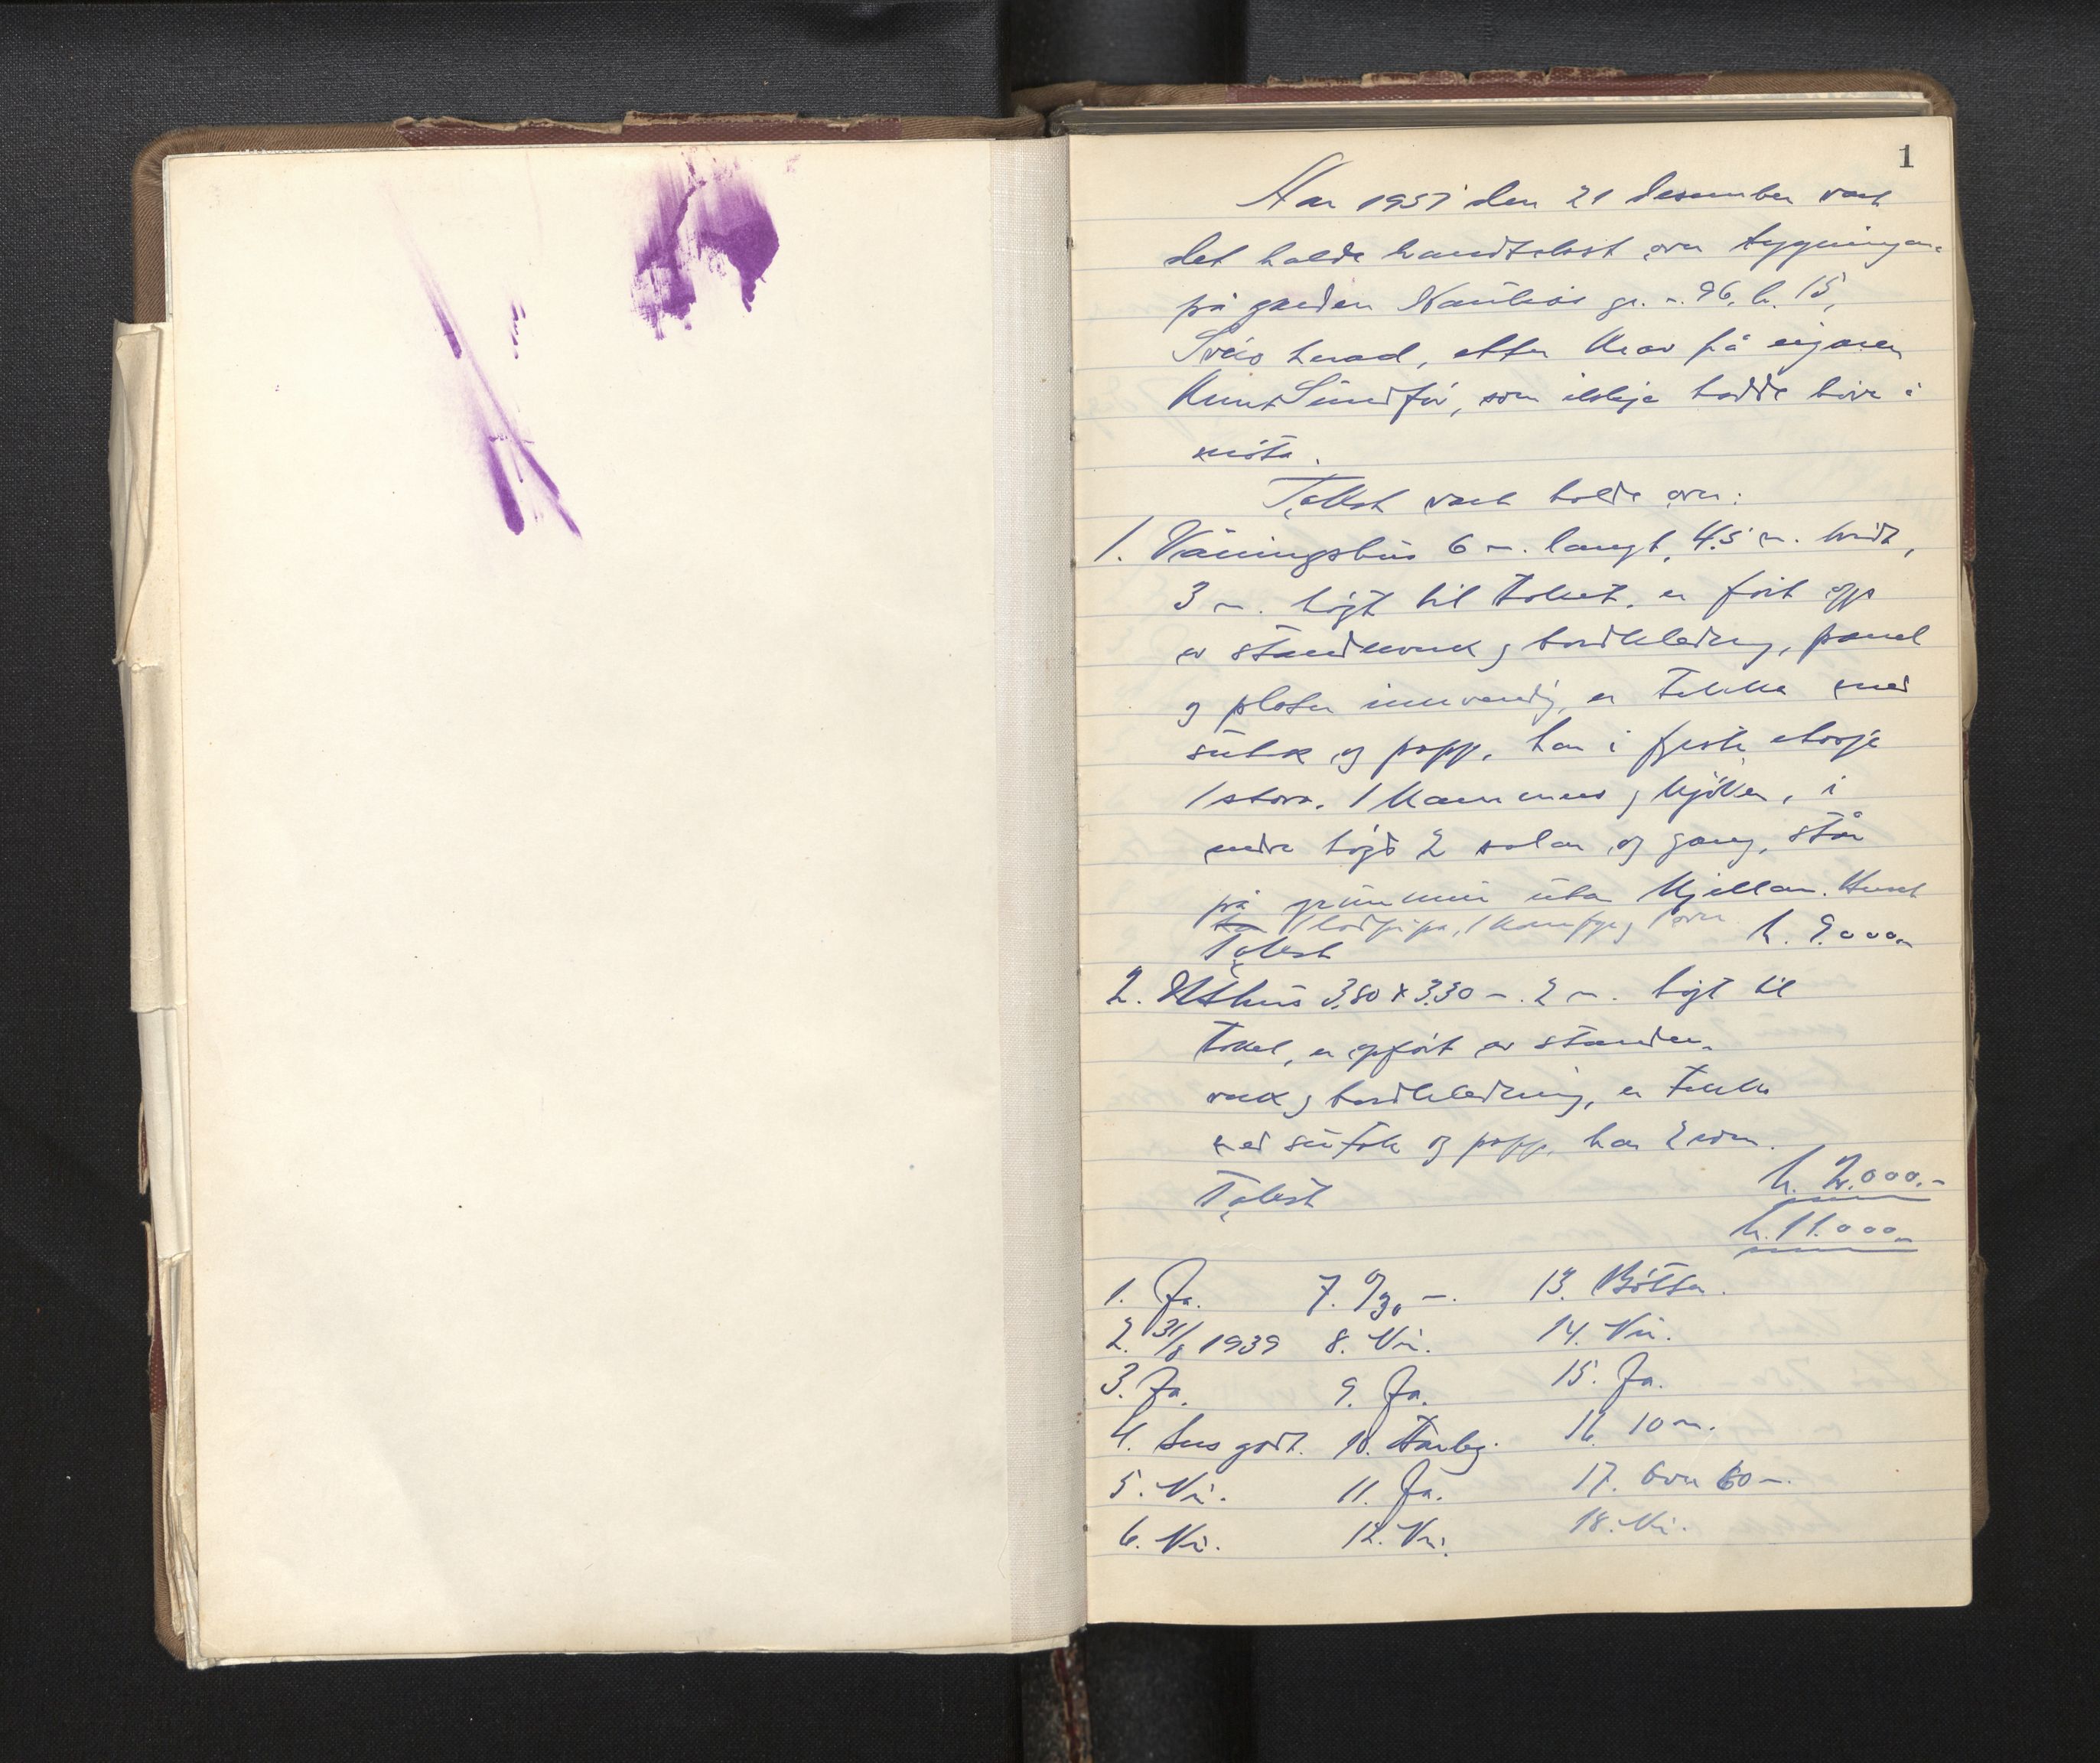 1
Aar 1951 den 21 desember vart
det halde brandtakst over bygningane
på garden Nautnes gr. n. 96, b. 15,
Sveio herad, etter krav frå eigaren
Knut Sundfør, som ikkje hadde høve i
møta.
Takst vart halde over:
1. Våningshus 6 m. langt, 4.5 m. bridt,
3 m. högt til taket, er fört opp
av standverk og bordkledning, panel
og plater innvendig, er tekka med
sutak og papp, har i fyrste etasje
1 stova, 1 kammers og kjöken, i
andre högd 2 salar og gang, står
på grunnmur utan kjellar. Huset
har 1 lodpipa, 1 komfyr og 1 ovn
Takst kr. 9.000.-
2. Uthus 3.80 x 3.30 m. 2 m. högt til
taket, er oppfört av stender-
verk og bordkledning, er tekka
med sutak og papp, har 2 rom.
Takst kr. 2.000.-
kr. 11.000.-
1. Ja. 7. 0/30 m. 13. Böttor.
2. 31/8 1939 8. Nei. 14. Nei.
3. Ja. 9. Ja. 15. Ja.
4. Sers godt. 10. Forby. 16. 10 m.
5. Nei. 11. Ja. 17. Over 60 m.
6. Nei. 12. Nei. 18. Nei.